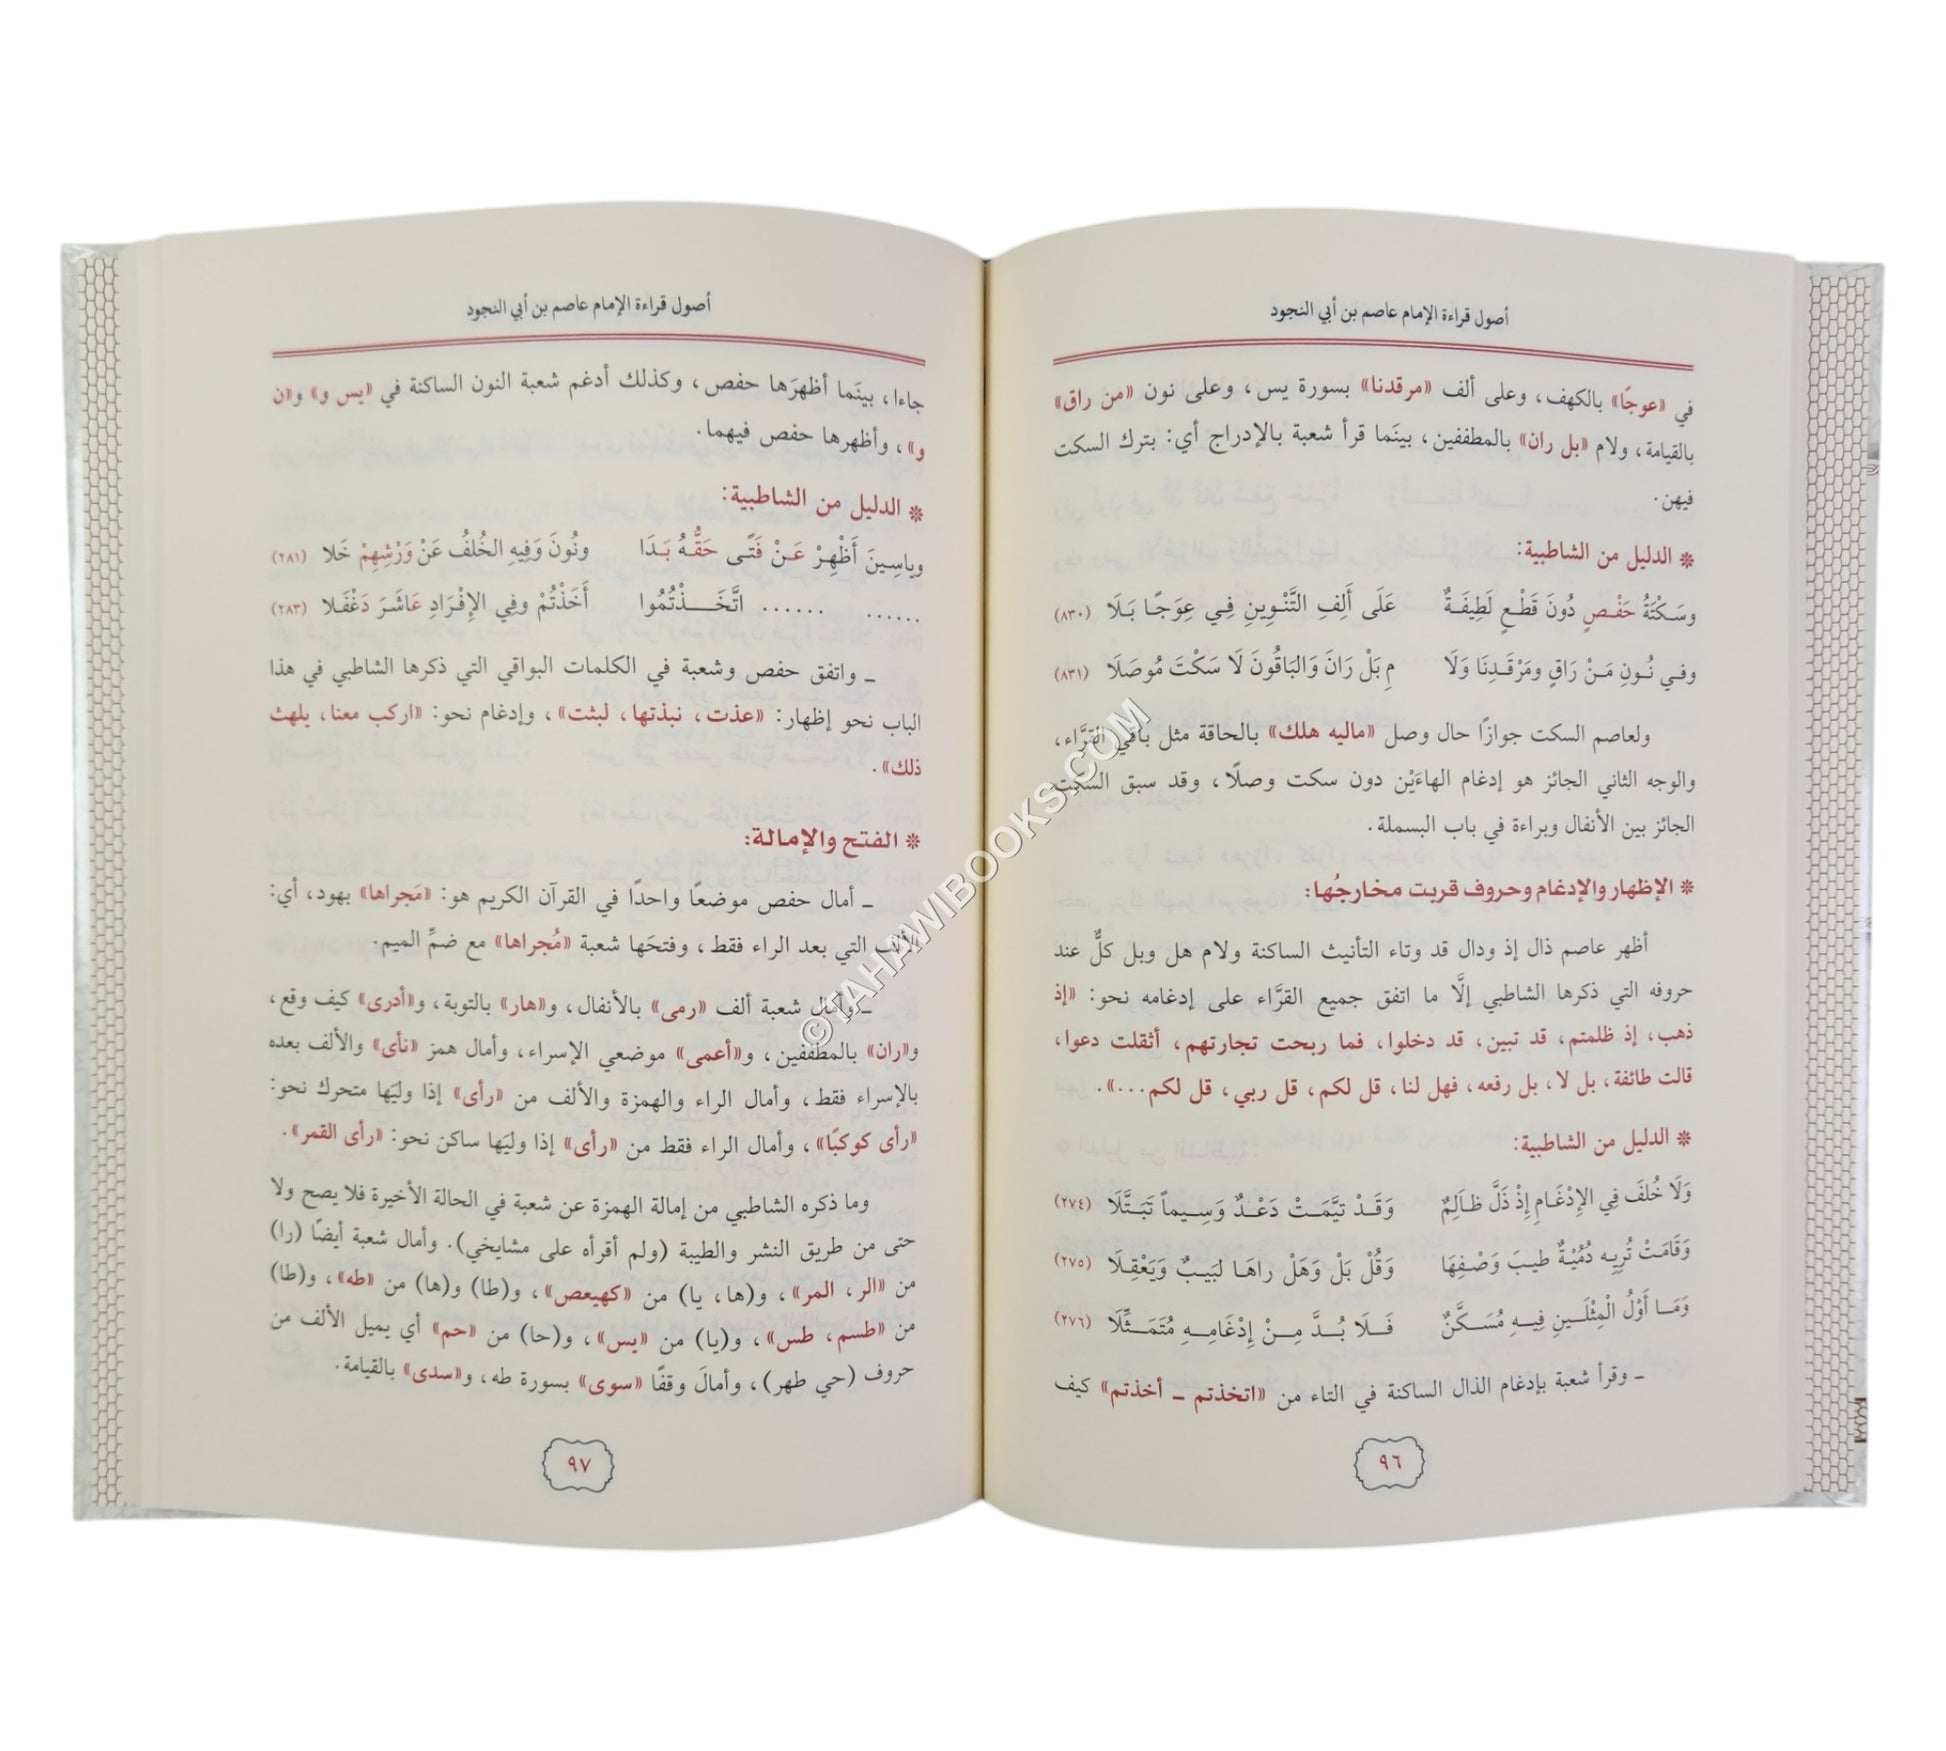 أصول قراءة الإمام عاصم بن أبي النجود
في «عوجًا» بالكهف، وعلى ألف «مرقدنا» بسورة يس، وعلى نون «من راق»
بالقيامة، ولام «بل ران» بالمطففين، بينَما قرأ شعبة بالإدراج أي: بترك السكت
فيهن.
* الدليل من الشاطبية:
وسَكْتَةُ حَفْصٍ دُونَ قَطْعٍ لَطِيفَةٌ عَلَى أَلِفِ التَّنْوِينِ فِي عِوَجًا بَلَا (٨٣٠)
وفي نُونِ مَنْ رَاقٍ ومَرْقَدِنَا وَلَا مِ بَلْ رَانَ وَالبَاقُونَ لَا سَكْتَ مُوصَلَا (٨٣١)
ولعاصم السكت جوازًا حال وصل «ماليه هلك» بالحاقة مثل باقي القرَّاء،
والوجه الثاني الجائز هو إدغام الهاءَيْن دون سكت وصلًا، وقد سبق السكت
الجائز بين الأنفال وبراءة في باب البسملة.
* الإظهار والإدغام وحروف قربت مخارجُها:
أظهر عاصم ذال إذ ودال قد وتاء التأنيث الساكنة ولام هل وبل كلٌّ عند
حروفه التي ذكرها الشاطبي إلَّا ما اتفق جميع القرَّاء على إدغامه نحو: «إذ
ذهب، إذ ظلمتم، قد تبين، قد دخلوا، فما ربحت تجارتهم، أثقلت دعوا،
قالت طائفة، بل لا، بل رفعه، فهل لنا، قل لكم، قل ربي، قل لكم...».
* الدليل من الشاطبية:
وَلَا خُلفَ فِي الإِدْغَامِ إِذْ ذَلَّ ظَالِمٌ وَقَدْ تيَّمَتْ دَعْدٌ وَسِيماً تَبَتَّلَا (٢٧٤)
وَقَامَتْ تُرِيهِ دُمْيَةٌ طيبَ وَصْفِهَا وَقُلْ بَلْ وَهَلْ راهَا لبَيبٌ وَيَعْقِلَا (٢٧٥)
وَمَا أَوْلُ الْمِثْلَينِ فِيهِ مُسَكَّنٌ فَلَا بُدَّ مِنْ إِدْغَامِهِ مُتَمَثِّلَا (٢٧٦)
ـ وقرأ شعبة بإدغام الذال الساكنة في التاء من «اتخذتم ـ أخذتم» كيف
٩٦
أصول قراءة الإمام عاصم بن أبي النجود
جاءا، بينَما أظهرَها حفص، وكذلك أدغم شعبة النون الساكنة في «يس و» و«ن
و»، وأظهرها حفص فيهما.
* الدليل من الشاطبية:
وياسِينَ أَظْهِرْ عَنْ فَتًى حَقُّهُ بَدَا ونُونَ وَفِيهِ الخُلفُ عَنْ وَرْشِهِمْ خَلا (٢٨١)
...... ...... ...... اتَّخَذْتُمُوا أَخَذْتُمْ وفِي الإِفْرَادِ عَاشَرَ دَغْفَلا (٢٨٣)
ـ واتفق حفص وشعبة في الكلمات البواقي التي ذكرها الشاطبي في هذا
الباب نحو إظهار: «عذت، نبذتها، لبثت»، وإدغام نحو: «اركب معنا، يلهث
ذلك».
* الفتح والإمالة:
ـ أمال حفص موضعًا واحدًا في القرآن الكريم هو: «مَجراها» بهود، أي:
الألف التي بعد الراء فقط، وفتحَها شعبة «مُجراها» مع ضمِّ الميم.
ـ وأمال شعبة ألف «رمى» بالأنفال، و«هار» بالتوبة، و«أدرى» كيف وقع،
و«ران» بالمطففين، و«أعمى» موضعي الإسراء، وأمال همز «نأى» والألف بعده
بالإسراء فقط، وأمال الراء والهمزة والألف من «رأى» إذا وليَها متحرك نحو:
«رأى كوكبًا»، وأمال الراء فقط من «رأى» إذا وليَها ساكن نحو: «رأى القمر».
وما ذكره الشاطبي من إمالة الهمزة عن شعبة في الحالة الأخيرة فلا يصح ولا
حتى من طريق النشر والطيبة (ولم أقرأه على مشايخي). وأمال شعبة أيضًا (را)
من «الر، المر»، و(ها، يا) من «كهيعص»، و(طا) و(ها) من «طه»، و(طا)
من «طسم، طس»، و(يا) من «يس»، و(حا) من «حم» أي يميل الألف من
حروف (حي طهر)، وأمالَ وقفًا «سوى» بسورة طه، و«سدى» بالقيامة.
٩٧
©TAHAWIBOOKS.COM